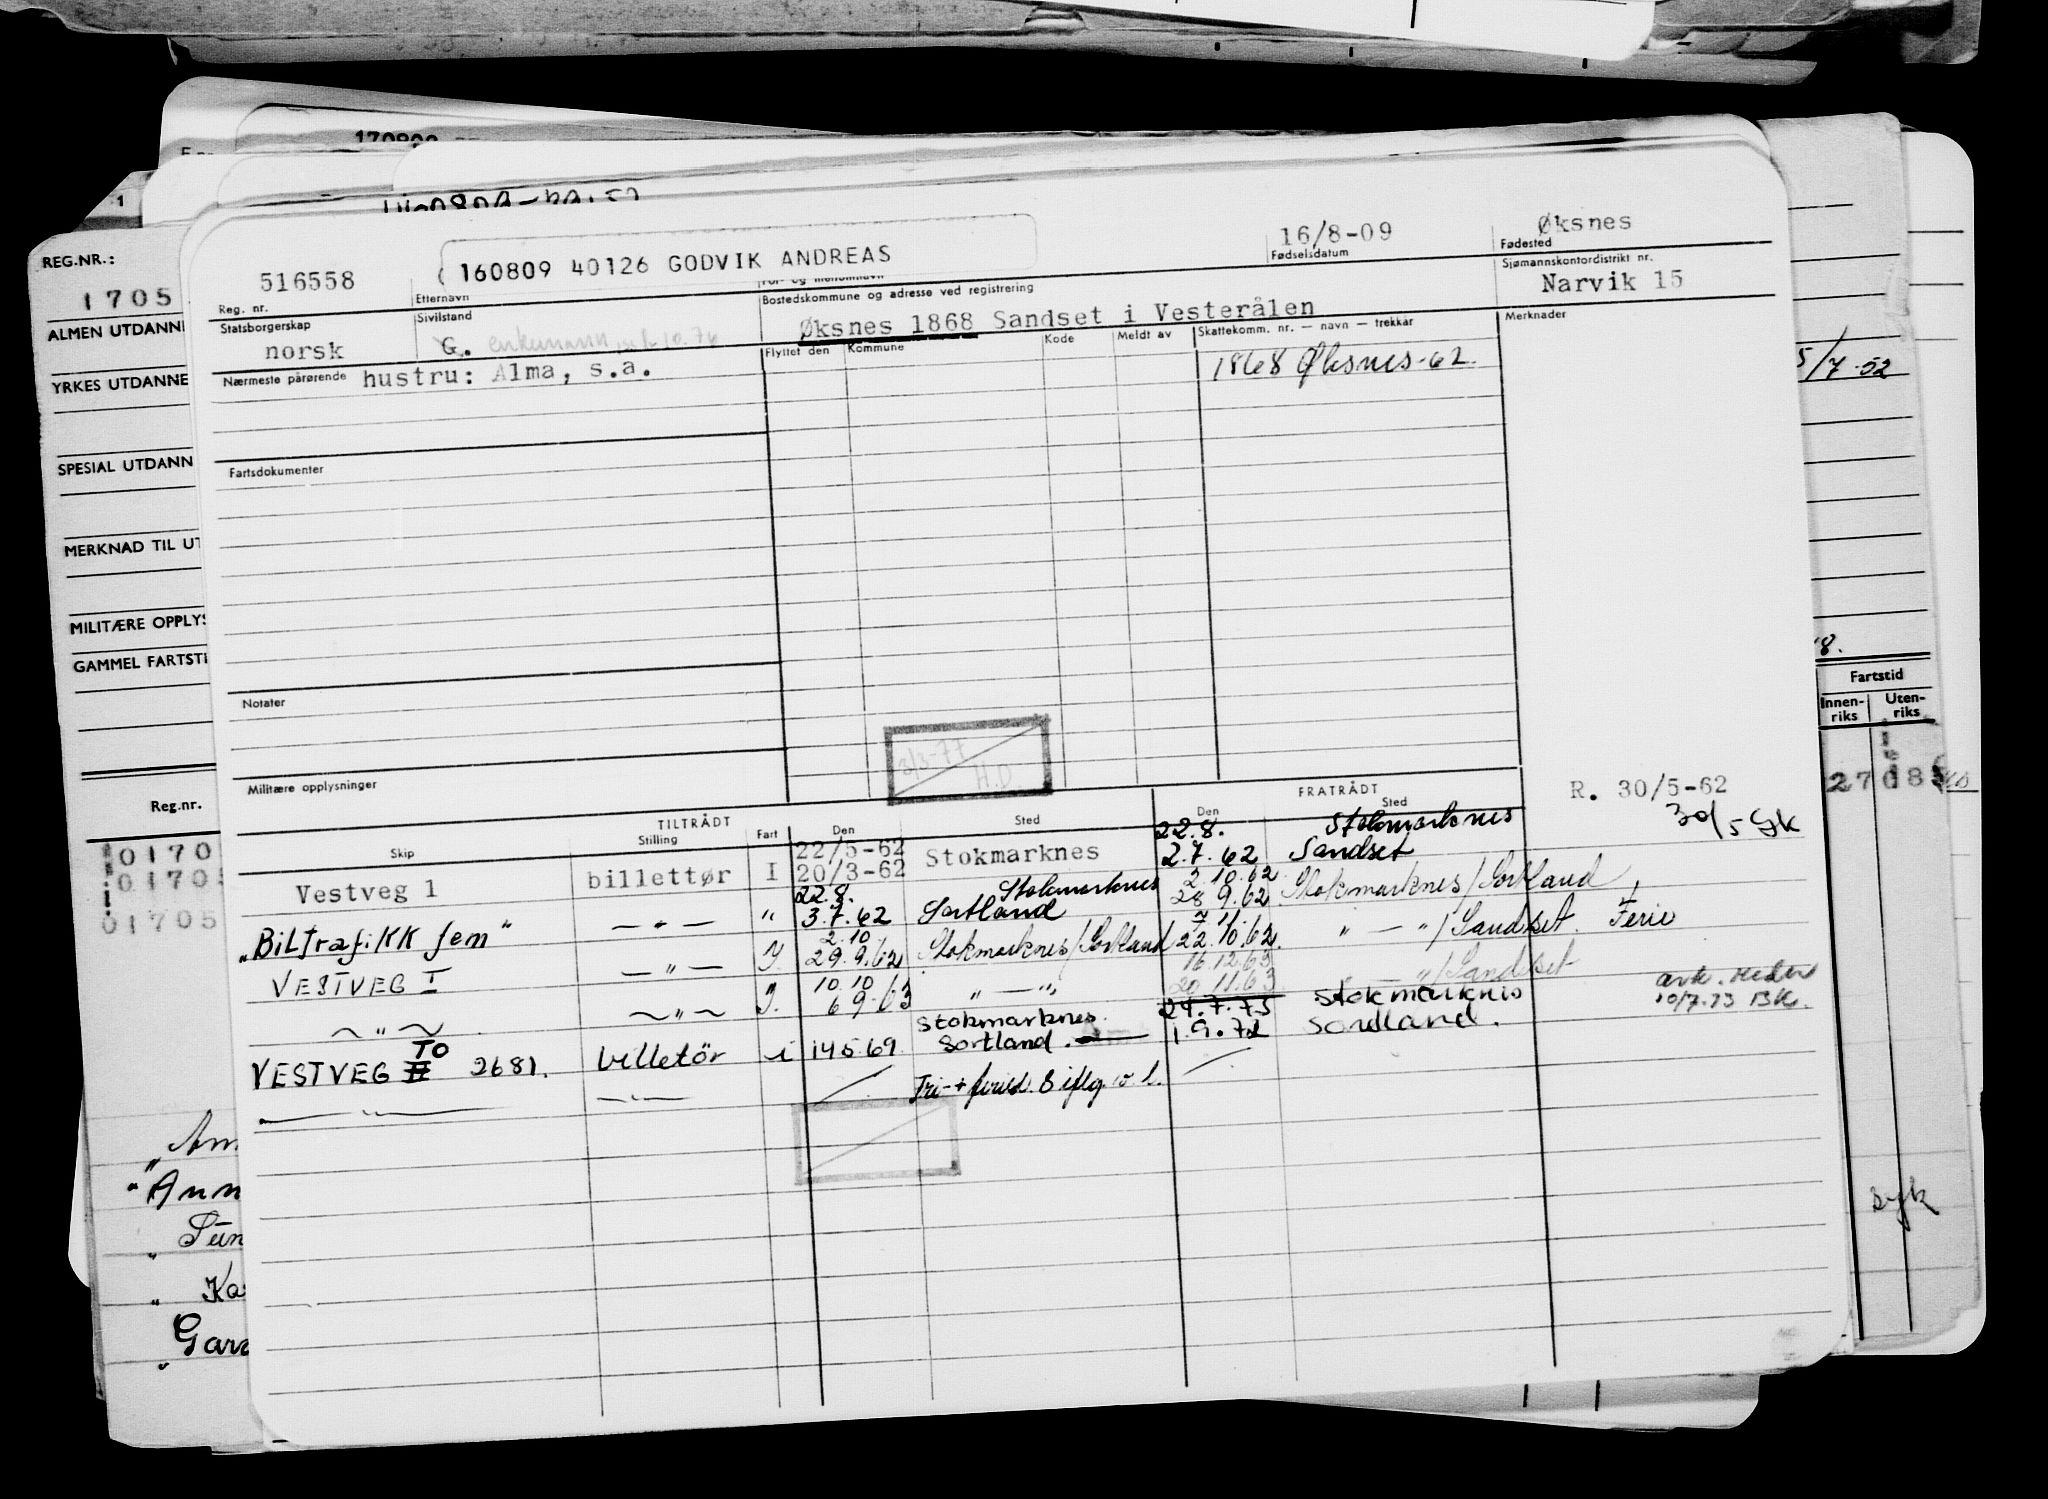 170809
REG.NR.:
1705
ALMEN UTDANNE
YRKES UTDANNE
SPESIAL UTDANN
MERKNAD TIL UT
MILITÆRE OPPLYS
GAMMEL FARTSTI
Reg.nr.
01705
01705
01705
516558
Reg. nr.
160809 40126 GODVIK ANDREAS
Etternavn
For- og mellomnavn
16/8-09
Fødselsdatum
Øksnes
Fødested
Statsborgerskap
norsk
Sivilstand
G. enkemann
Bostedskommune og adresse ved registrering
Øksnes 1868 Sandset i Vesterålen
Sjømannskontordistrikt nr.
Narvik 15
Nærmeste pårørende hustru: Alma, s.a.
Flyttet den Kommune Kode Meldt av Skattekomm. nr. — navn — trekkår Merknader
1868 Øksnes-62.
5/7-52
Fartsdokumenter
Notater
3/3-77
H.D
Militære opplysninger
Fartstid
Innen-riks Uten-riks
TILTRÅDT FRATRÅDT
Skip Stilling Fart Den Sted Den Sted
R. 30/5-62
30/5 GK
22/5-62 22.8. Stokmarknes
Vestveg 1 billettør I 20/3-62 Stokmarknes 2.7.62 Sandset
22.8. Stokmarknes 2.10.62
"Biltrafikk fem" — " — " 3.7.62 Sortland 28 9.62 Stokmarknes/Sortland
2.10 7 11.
VESTVEG I — " — I. 29.9.62 Stokmarknes/Sortland 22.10.62. " — "/Sandset. Ferie
10 10 16.12.63
— " — — " — I. 6 9-63 " — " 20 11.63 — "/Sandset
Stokmarknes. 24.7.75 Stokmarknes
VESTVEG TO II 2681. billetör i 14.5.69. Sortland. 1.9.72 Sortland.
10/7.73 BK.
— " — — " —
syk